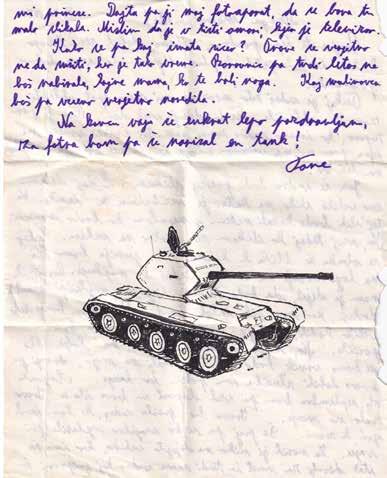 mi prinese. Dajta pa ji moj fotoaparat, da se bova tu
malo slikala. Mislim da je v tisti omari, kjer je televizor.
Kako se pa kaj imata sicer? Trave se verjetno
ne da sušiti, ker je tako vreme. Borovnic pa tudi letos ne
boš nabirala, mama, ko te boli noga. Kaj malinovca
boš pa vseeno verjetno naredila.
Na koncu vaju še enkrat lepo pozdravljam,
za fotra bom pa še narisal en tank!
Tone